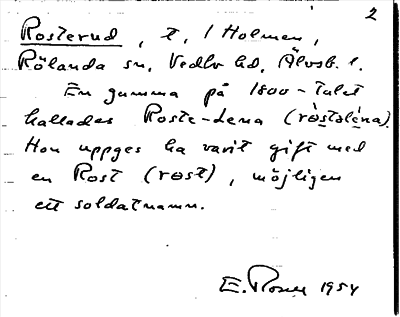 2
Rosterud, t, 1 Holmen,
Rölanda sn, Vedbo hd, Älvsb. l.
En gumma på 1800-talet
kallades Roste-Lena (ròstəléna).
Hon uppges ha varit gift med
en Rost (rɵst), möjligen
ett soldatnamn.
E. Rosell 1954